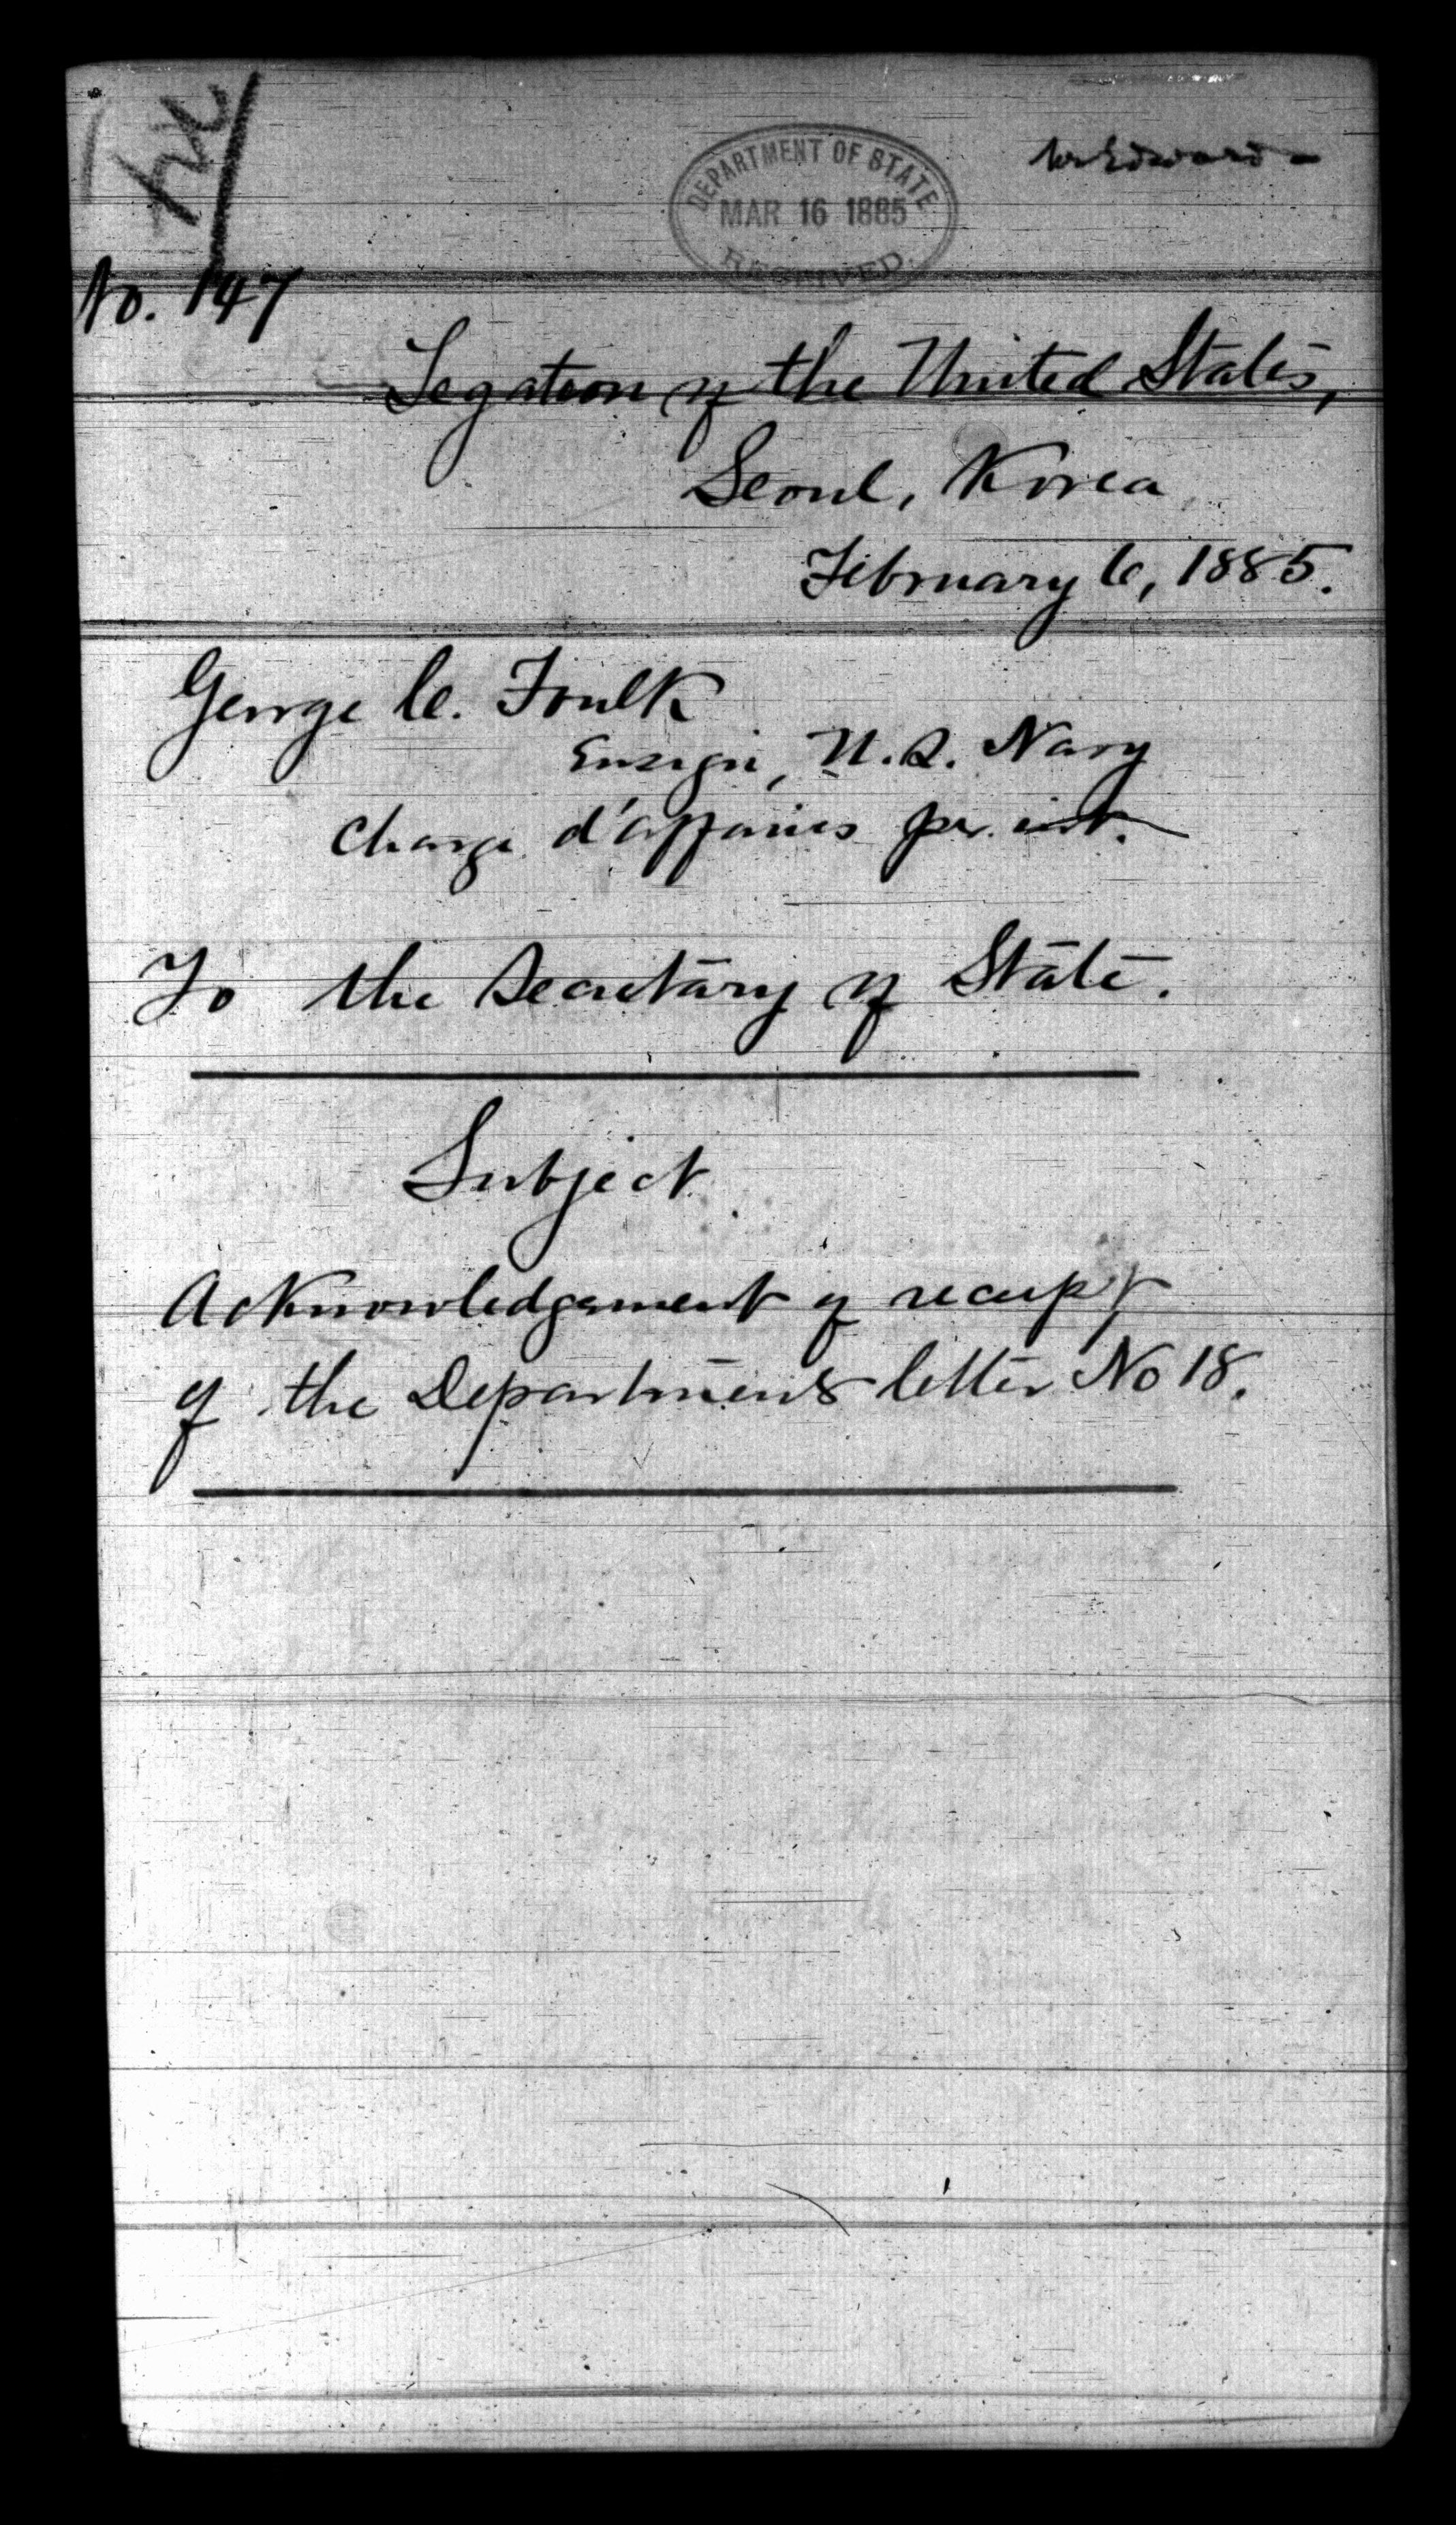 DEPARTMENT OF STATE
MAR 16 1885
RECEIVED.
Mr Edwards
No. 147
Legation of the United States,
Seoul, Korea
February 6, 1885.
George C. Foulk
Ensign, U.S. Navy
Chargé d'affaires pr. int.
To the Secretary of State.
Subject
Acknowledgement of receipt
of the Departments letter No 18.